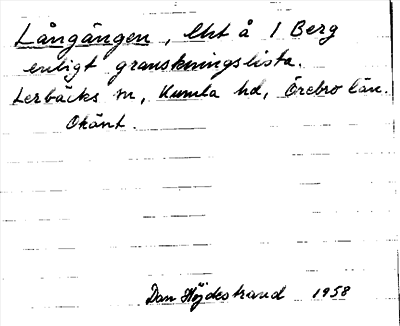 Långängen, lht å 1 Berg
enligt granskningslista.
Lerbäcks sn, Kumla hd, Örebro län.
Okänt.
Dan Höjdestrand 1958